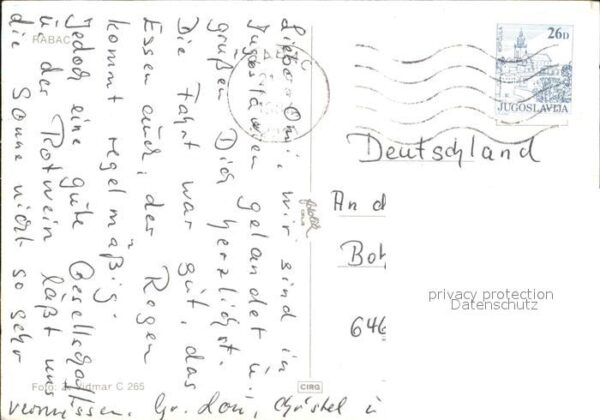 RABAC
Liebe Omi, wir sind in
Jugoslawien gelandet u.
grüßen Dich herzlichst.
Die Fahrt war gut, das
Essen auch, der Regen
kommt regelmäßig.
Jedoch eine gute Gesellschaft
u. der Rotwein läßt uns
die Sonne nicht so sehr
vermissen. Gr. Christel u
Foto: Z. Vidmar C 265
CIRG
26D
JUGOSLAVIJA
Deutschland
An d
Boh
646
privacy protection
Datenschutz